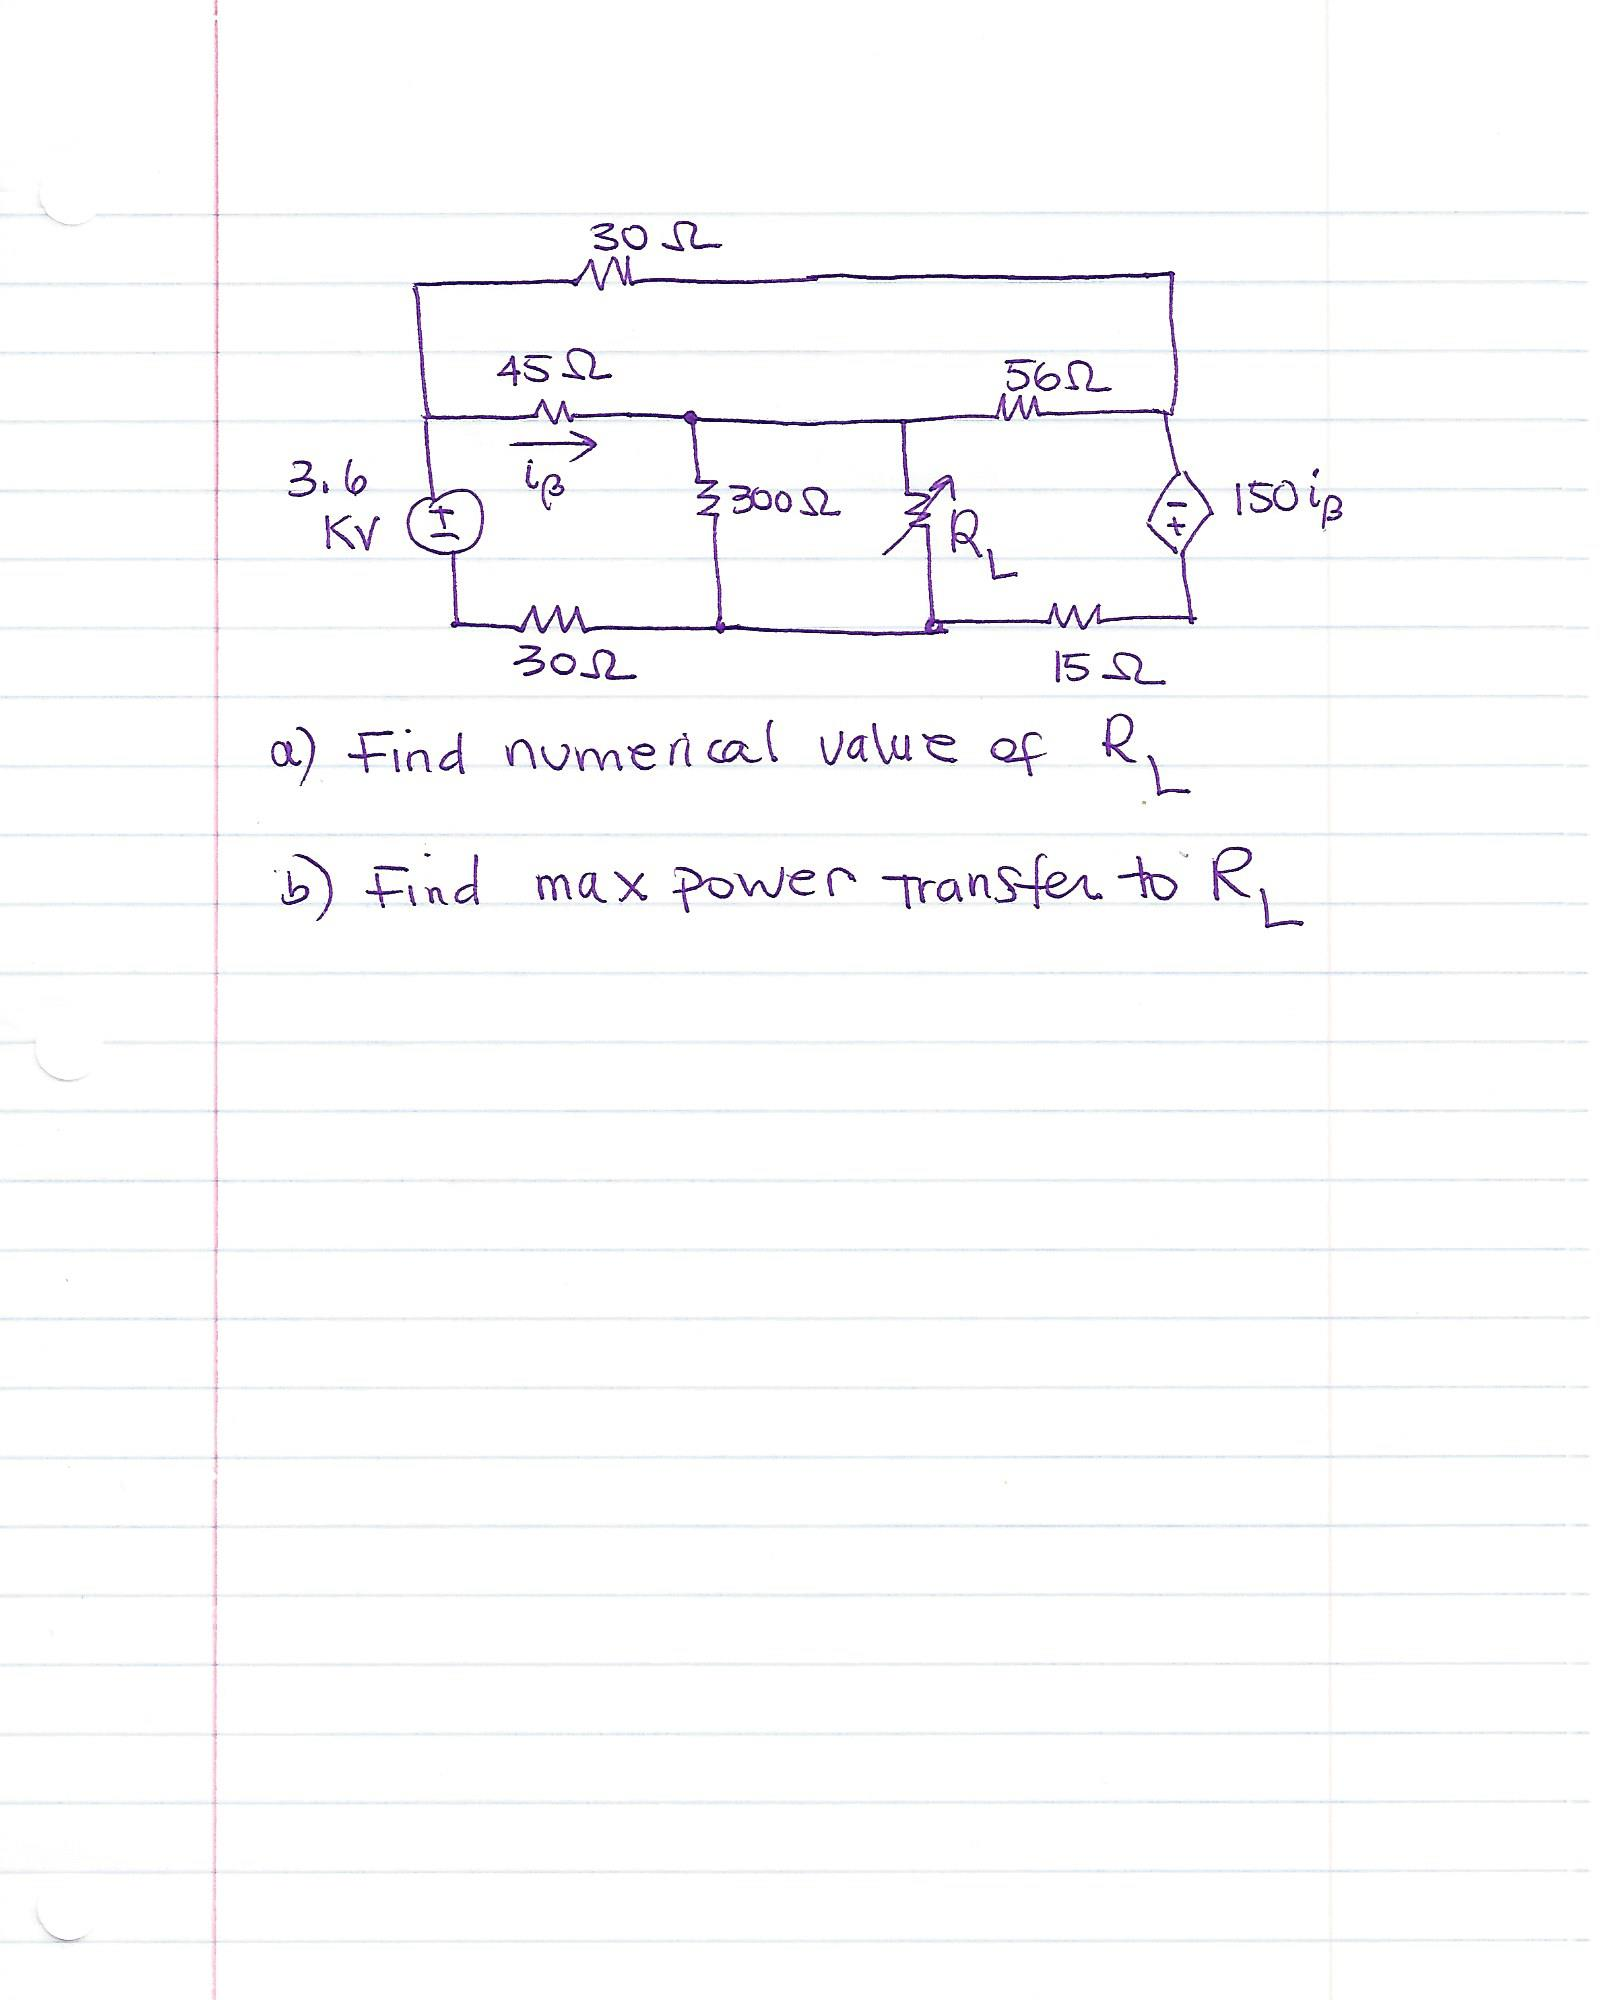 30 Ω
45 Ω
56Ω
iβ
3.6
KV
+
-
300Ω
R_L
-
+
150 iβ
30Ω
15 Ω
a) Find numerical value of R_L
b) Find max power transfer to R_L